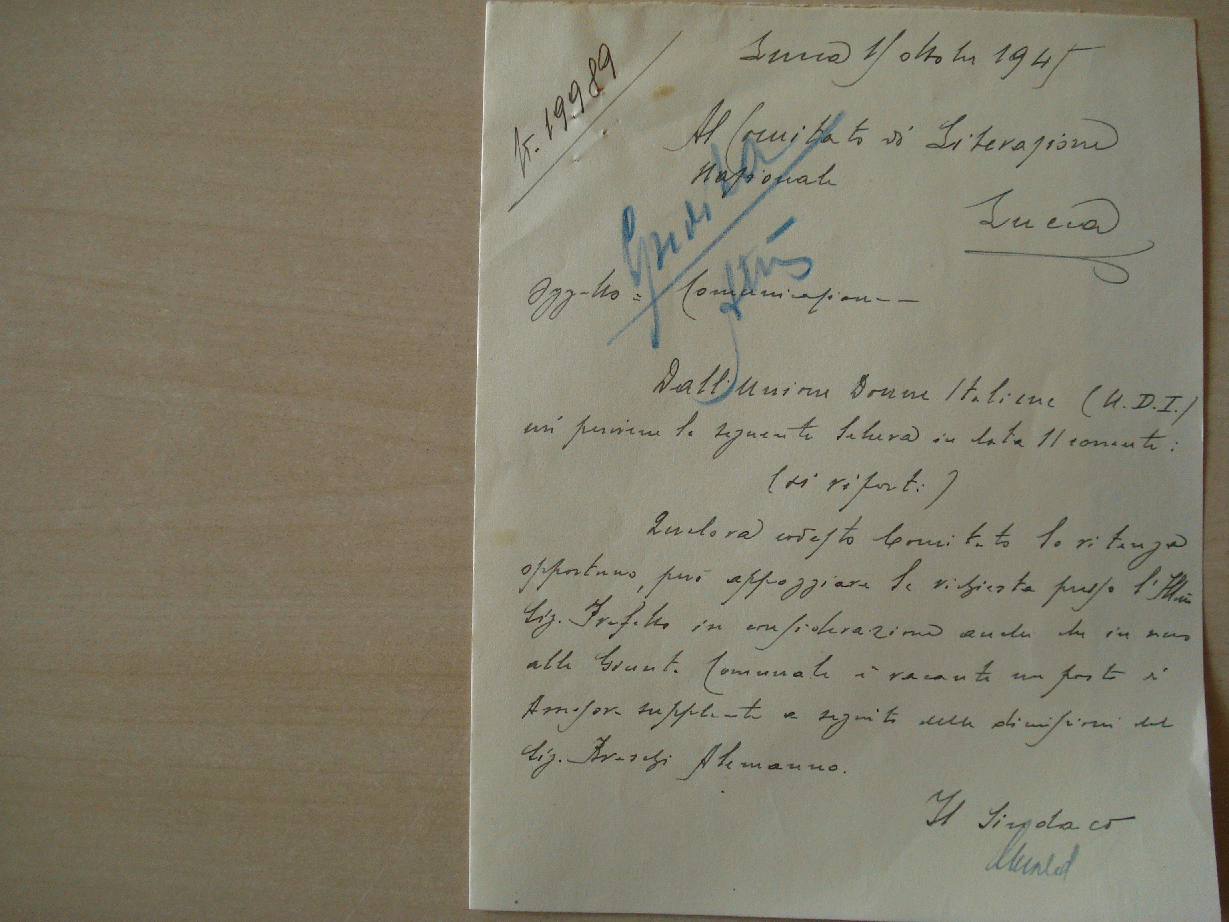 Lucca 15 ottobre 1945
N. 19989
Al Comitato di Liberazione
Nazionale
Lucca
Oggetto = Comunicazione
Dall'Unione Donne Italiane (U.D.I.)
mi perviene la seguente lettera in data 11 corrente:
(si riporti)
Qualora codesto Comitato lo ritenga
opportuno, può appoggiare la richiesta presso l'Ill.mo
Sig. Prefetto in considerazione anche che in seno
alla Giunta Comunale è vacante un posto di
Assessore supplente a seguito delle dimissioni del
Sig. Alemanno.
Il Sindaco